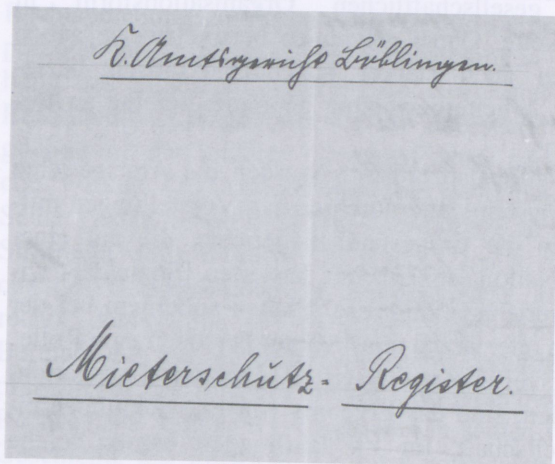 K. Amtsgericht Böblingen.
Mieterschutz- Register.